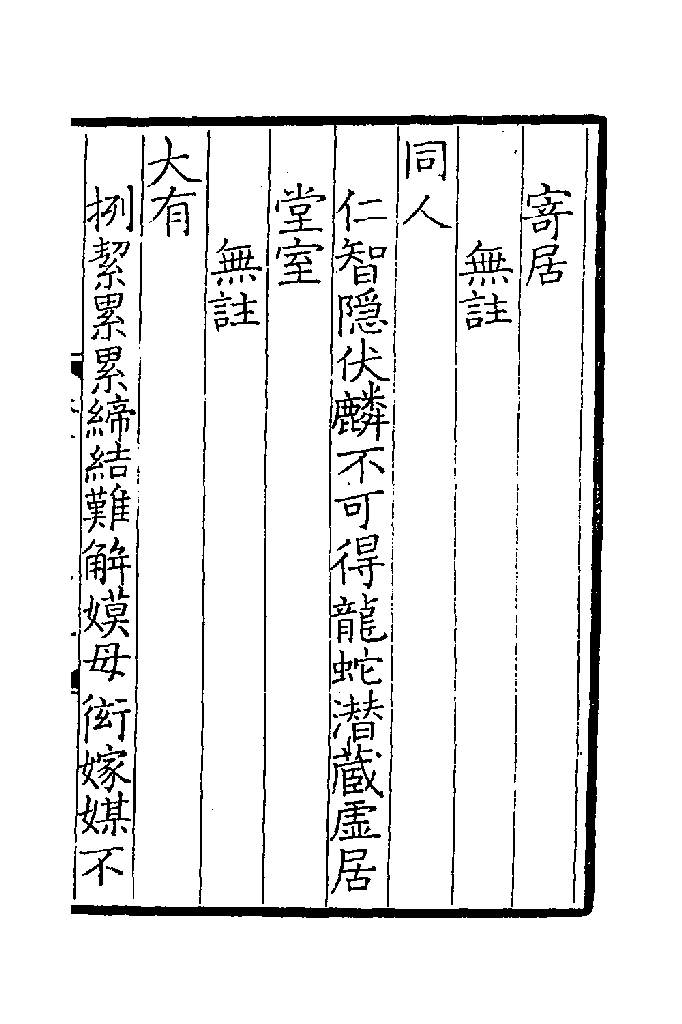 寄居
無註
同人
仁智隠伏麟不可得龍蛇潜蔵虚居
堂室
無註
大有
挒絜累累締結難解嫫母衒嫁媒不